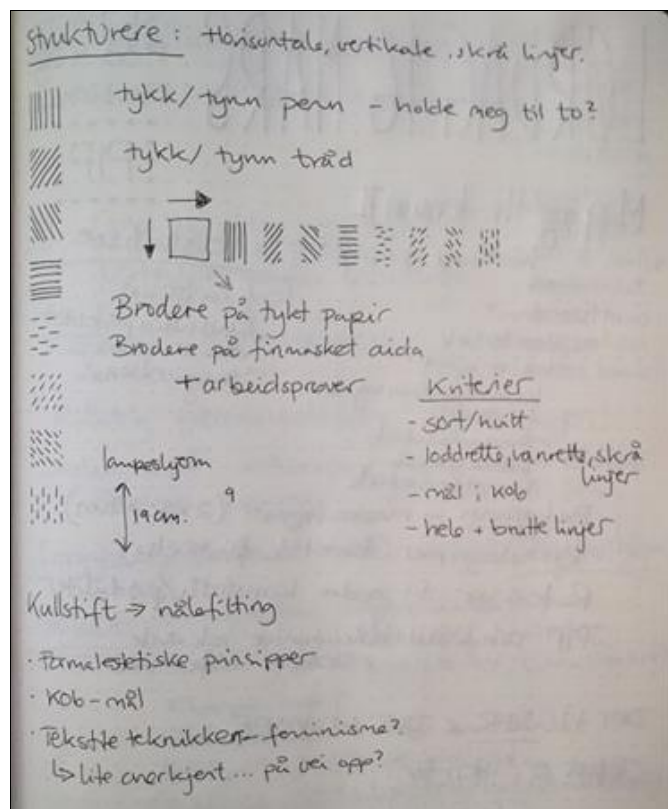 strukturere: Horisontale, vertikale, skrå linjer.
tykk/tynn penn - holde meg til to?
tykk/ tynn tråd
Brodere på tykt papir
Brodere på finmasket aida
+ arbeidsprøver
Kriterier
- sort/hvitt
- loddrette, vannrette, skrå
linjer
- mål i KOB
- hele + brutte linjer
lampeskjerm
19cm.
9
Kullstift ⇒ nålefilting
· Formalestetiske prinsipper
· KOB-mål
· Tekstile teknikker - feminisme?
↳ lite anerkjent ... på vei opp?